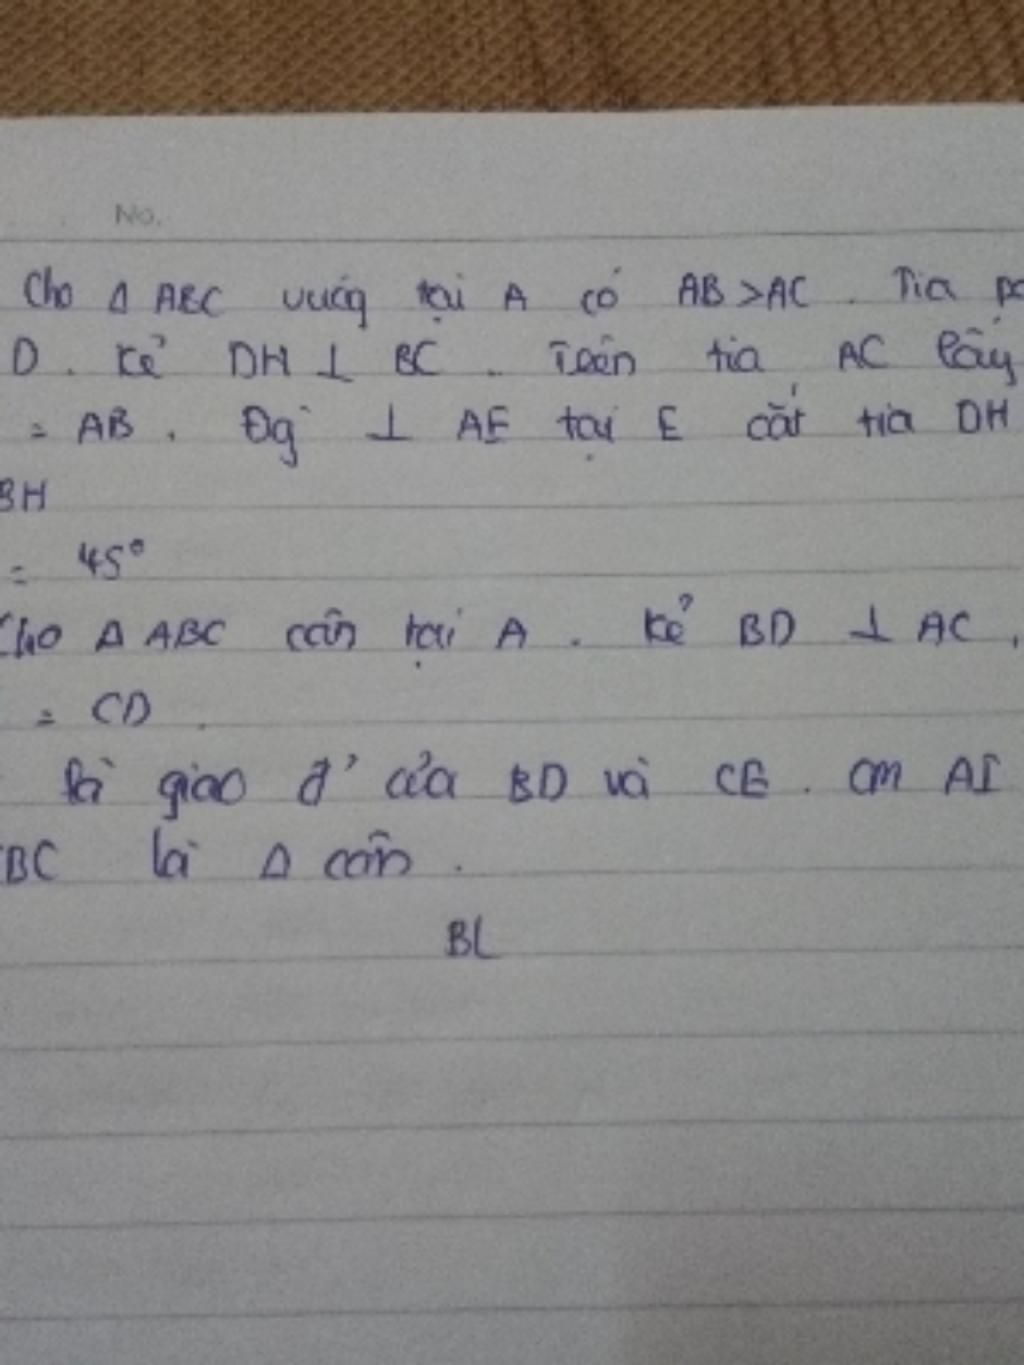 No.
Cho Δ ABC vuóg tại A có AB > AC . Tia
D . Kẻ DH ⊥ BC . Trên tia AC lấy
= AB . Đg ⊥ AE tại E cắt tia DH
BH
= 45°
Cho Δ ABC cân tại A . Kẻ BD ⊥ AC ,
= CD .
là giao đ' của BD và CE . CM AI
BC là Δ cân .
BL